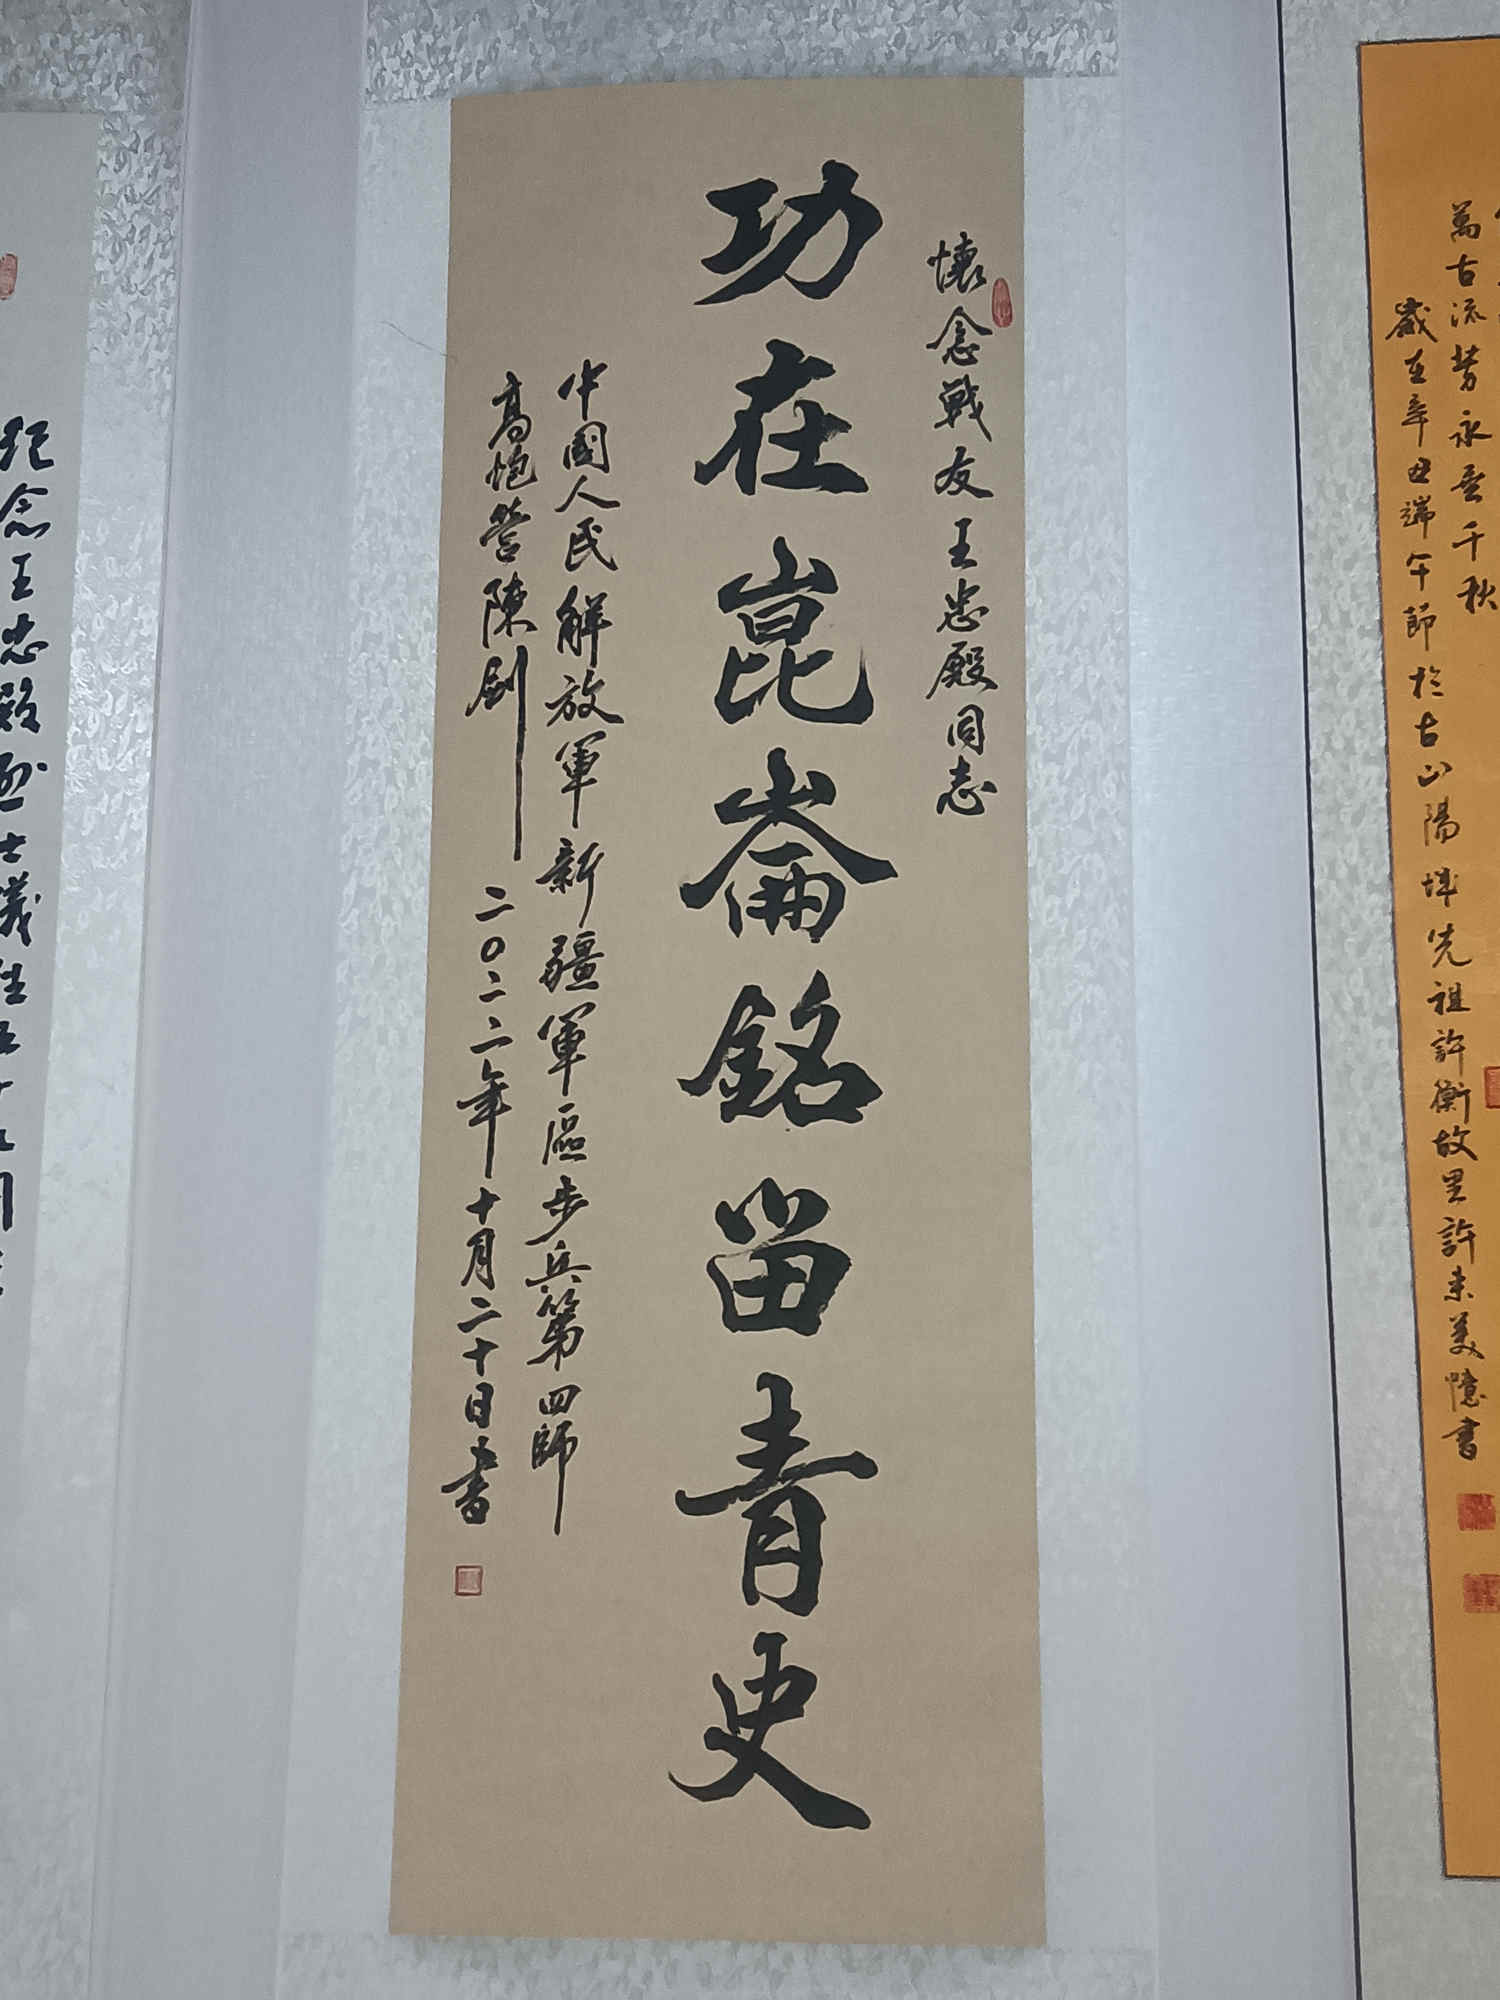 懷念戰友王忠殿同志
功在崑崙銘留青史
中國人民解放軍新疆軍區步兵第四師
高炮營陳剑
二〇二二年十月二十日書
萬古流芳永垂千秋
歲在辛丑端午節於古山陽城先祖許衡故里許来美憶書
紀念王忠殿烈士犧牲五十九周